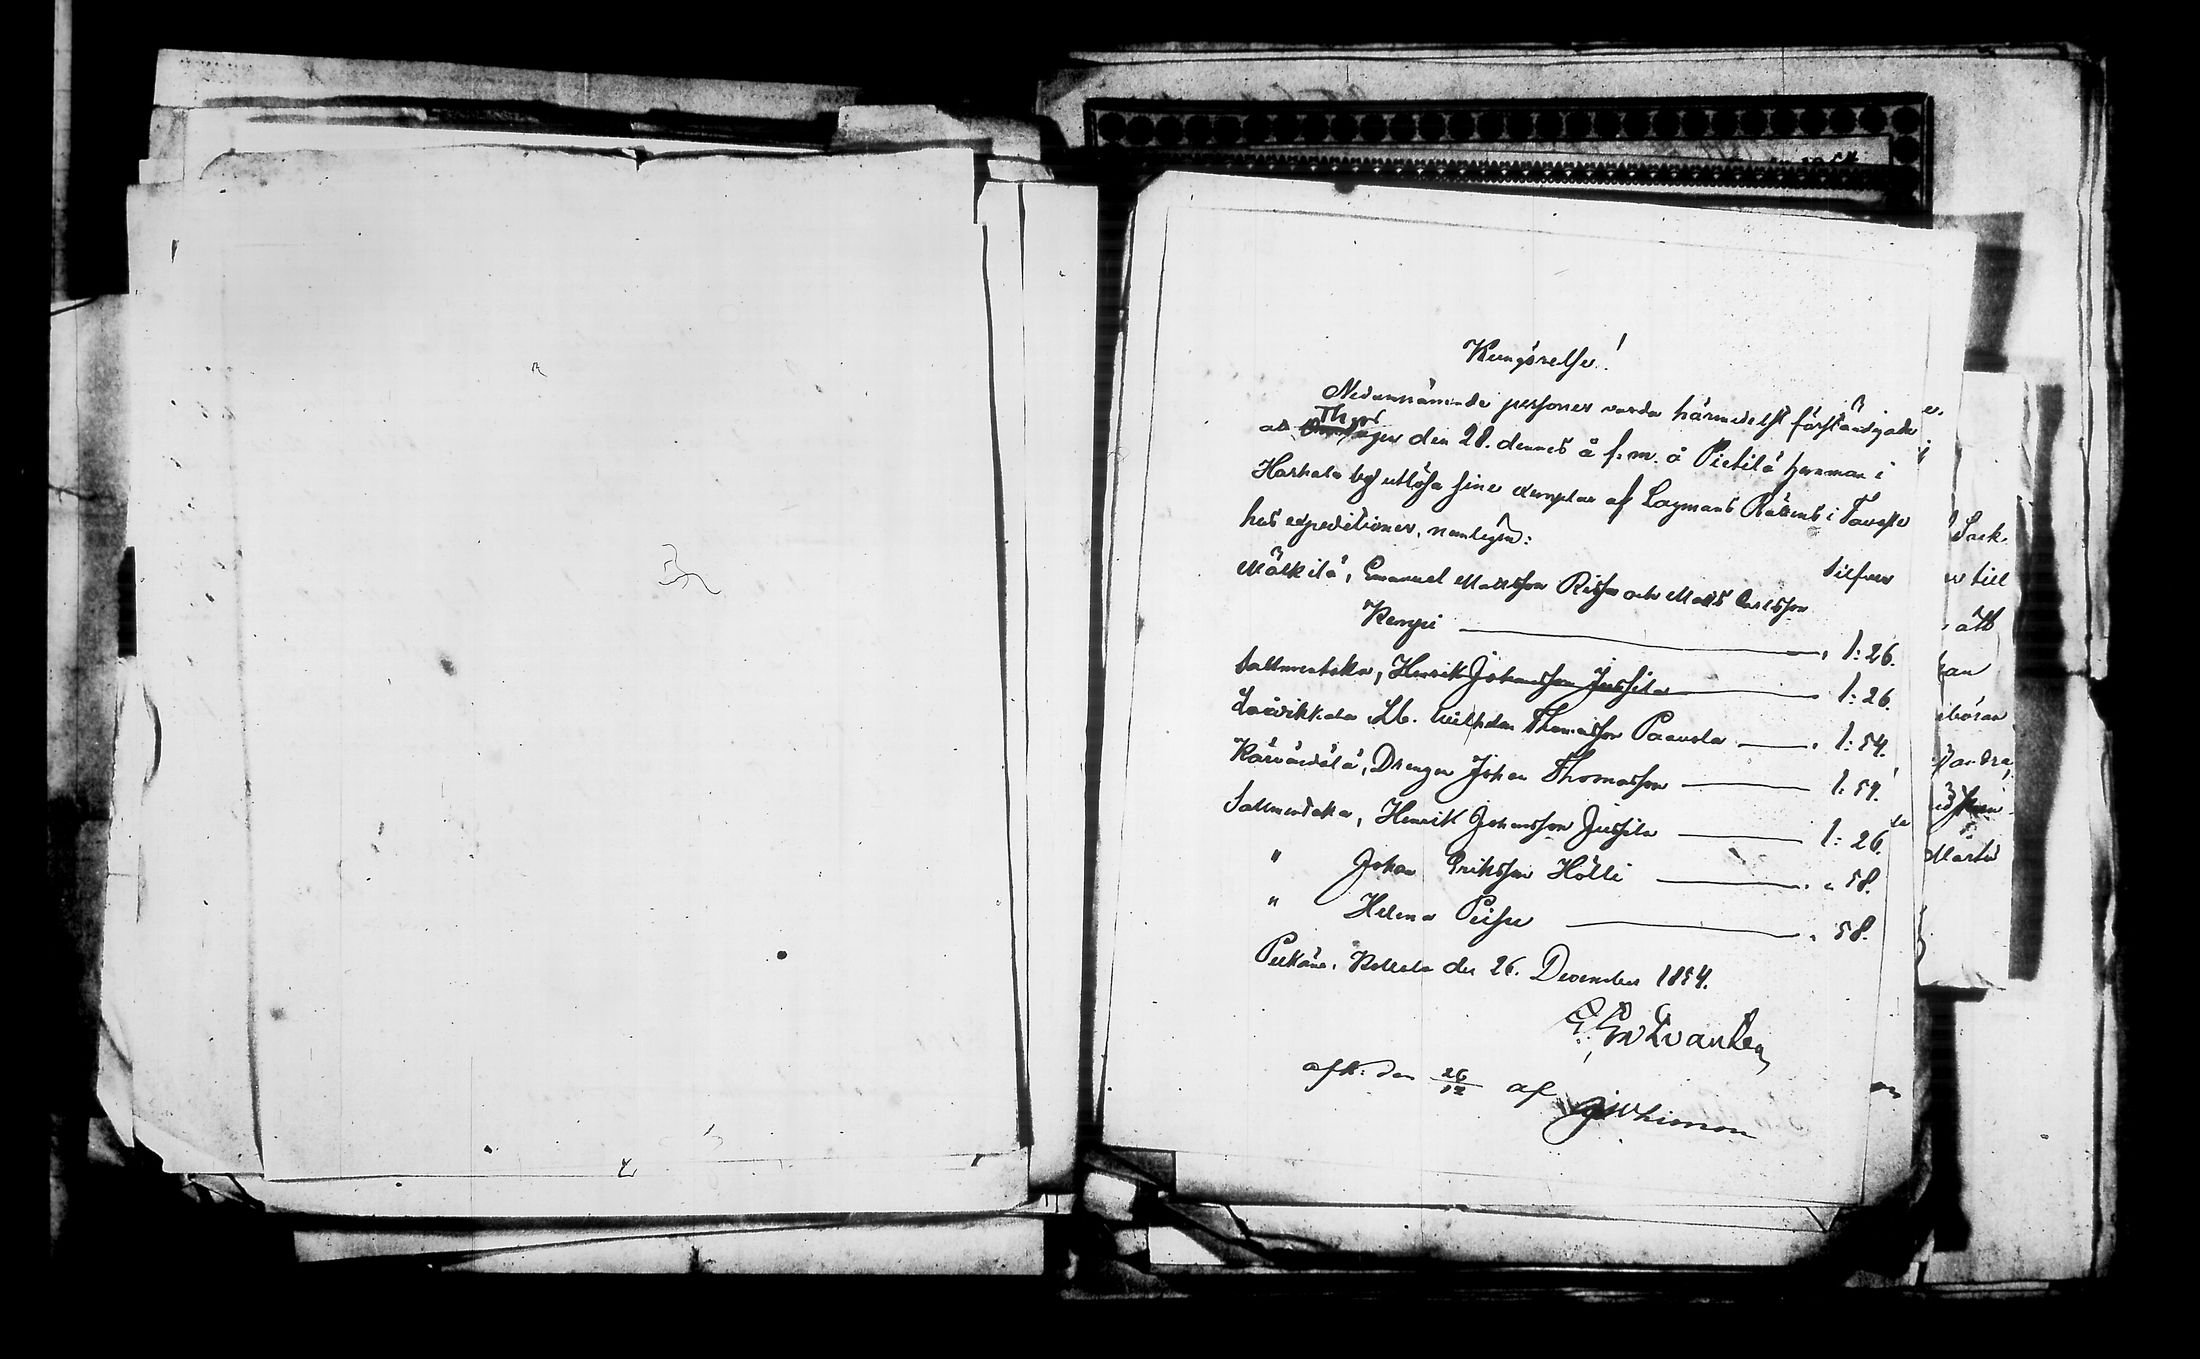 Kungörelse!
Nedannämnde personer varda härmedelst förständigade
att Thorsdagen den 28. dennes å f. m. å Pietilä hemman i
Harhala by utlösa sine exemplar af Lagmans Rättens i Tavaste
hus expeditioner, nemligen:
Silfver
Mälkilä, Emanuel Mattsson och Matts Carlsson
Kempi 1: 26.
Saltmentaka, Henrik Johansson Jussila 1: 26.
Wilhelm Thomasson Paavola 1: 54.
Drengen Johan Thomasson 1: 54.
Salmentaka, Henrik Johansson Jussila 1: 26.
" Johan Eriksson Hölli " 58.
" Helena " 58.
Pelkäne, den 26. December 1854.
afk: den 26/12 af